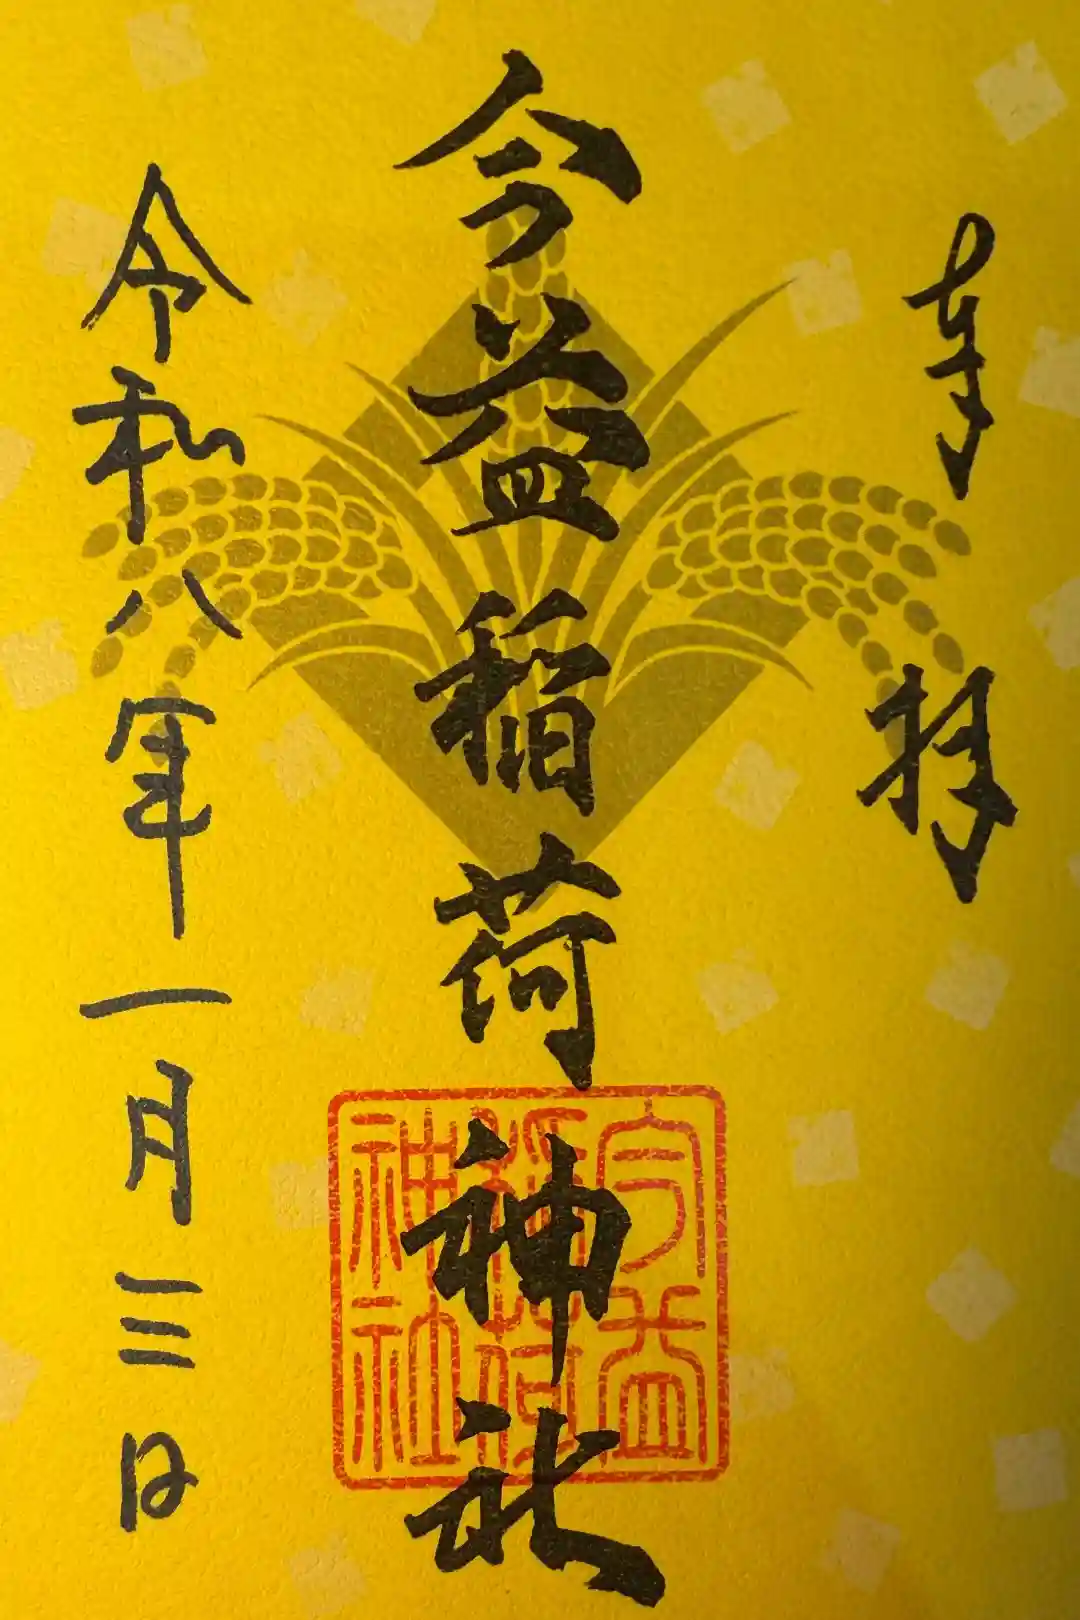 奉拝
今益稲荷神社
今益
稲荷
神社
令和八年一月三日